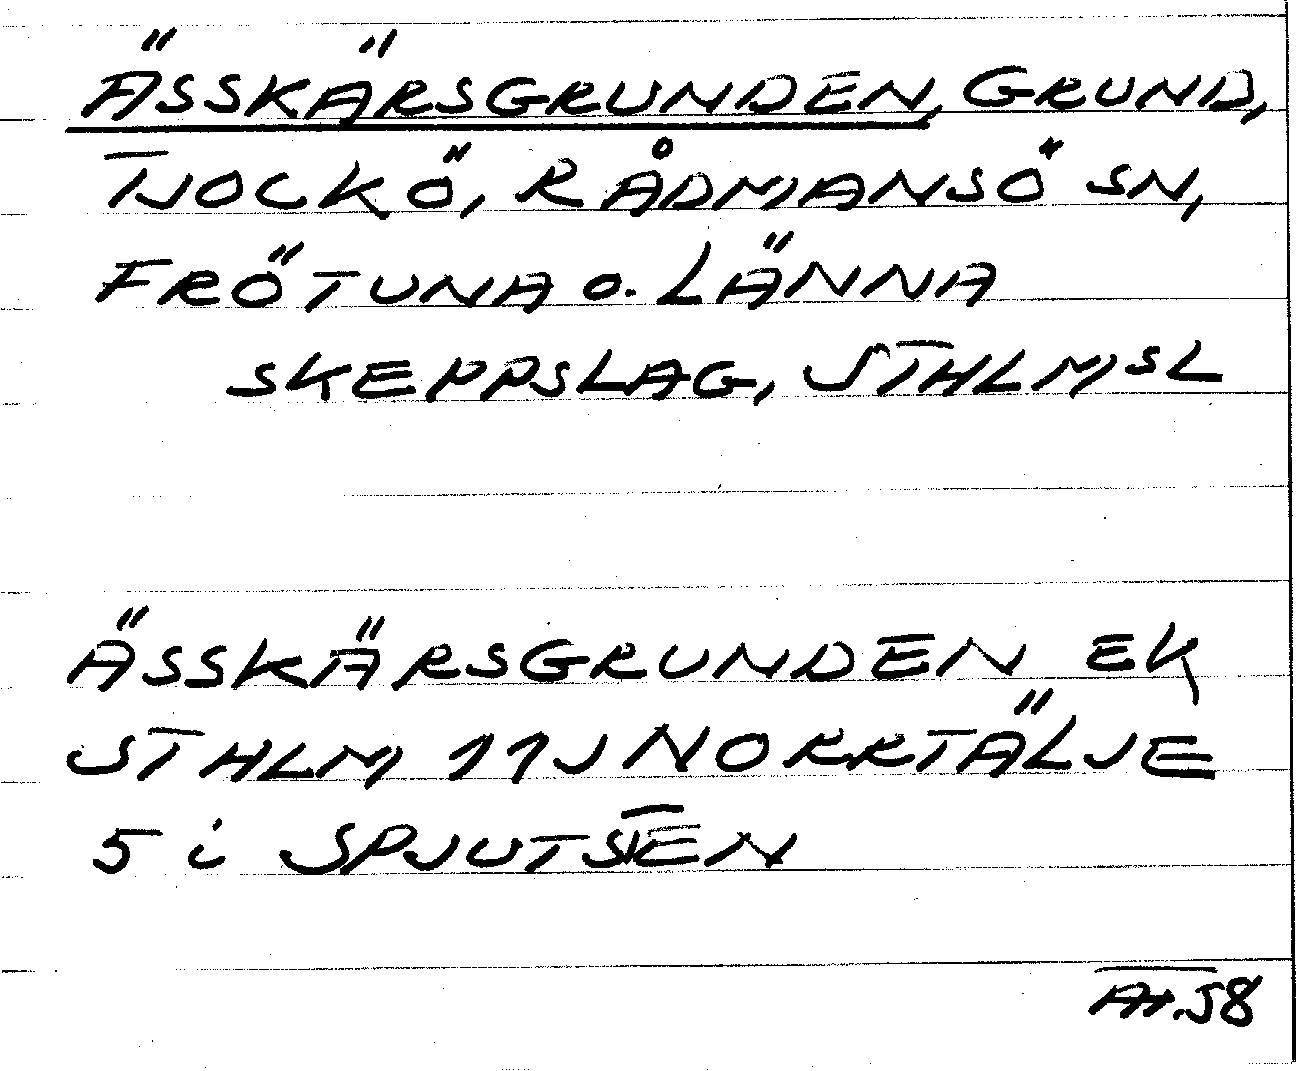 ÄSSKÄRSGRUNDEN, GRUND,
TJOCKÖ, RÅDMANSÖ SN,
FRÖTUNA o. LÄNNA
SKEPPSLAG, STHLMSL
ÄSSKÄRSGRUNDEN EK
STHLM 11J NORRTÄLJE
5 i SPJUTSTEN